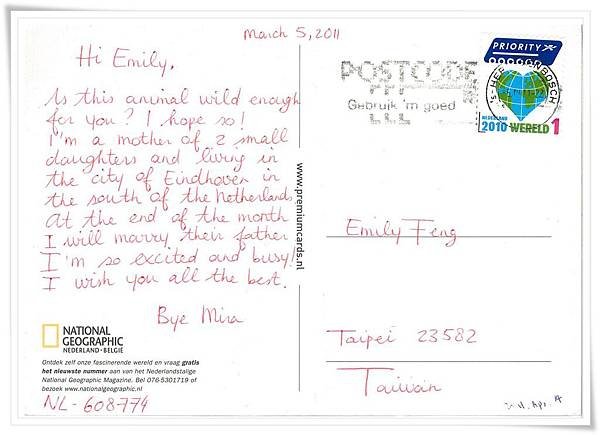 March 5, 2011
Hi Emily,
Is this animal wild enough
for you? I hope so!
I'm a mother of 2 small
daughters and living in
the city of Eindhoven in
the south of the Netherlands
At the end of the month
I will marry their father
I'm so excited and busy!
I wish you all the best.
Bye Mira
NATIONAL
GEOGRAPHIC
NEDERLAND-BELGIË
Ontdek zelf onze fascinerende wereld en vraag gratis
het nieuwste nummer aan van het Nederlandstalige
National Geographic Magazine. Bel 076-5301719 of
bezoek www.nationalgeographic.nl
NL-608774
www.premiumcards.nl
POSTCODE
Gebruik 'm goed
PRIORITY
'S-HERTOGENBOSCH
NEDERLAND
2010 WERELD 1
Emily Feng
Taipei 23582
Taiwan
2011. Apr. 14